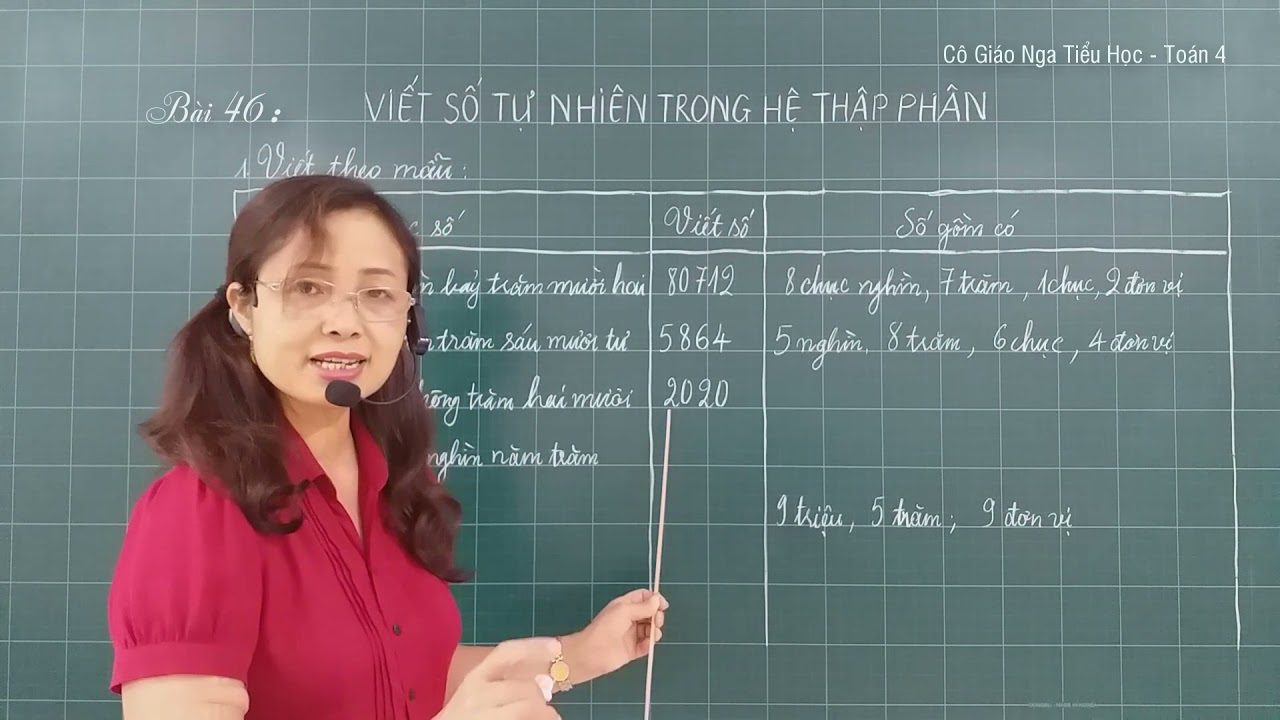 Cô Giáo Nga Tiểu Học - Toán 4
Bài 46: VIẾT SỐ TỰ NHIÊN TRONG HỆ THẬP PHÂN
1. Viết theo mẫu:
số Viết số Số gồm có
bảy trăm mười hai 80712 8 chục nghìn, 7 trăm, 1 chục, 2 đơn vị
trăm sáu mươi tư 5864 5 nghìn, 8 trăm, 6 chục, 4 đơn vị
trăm hai mươi 2020
nghìn năm trăm
9 triệu, 5 trăm; 9 đơn vị